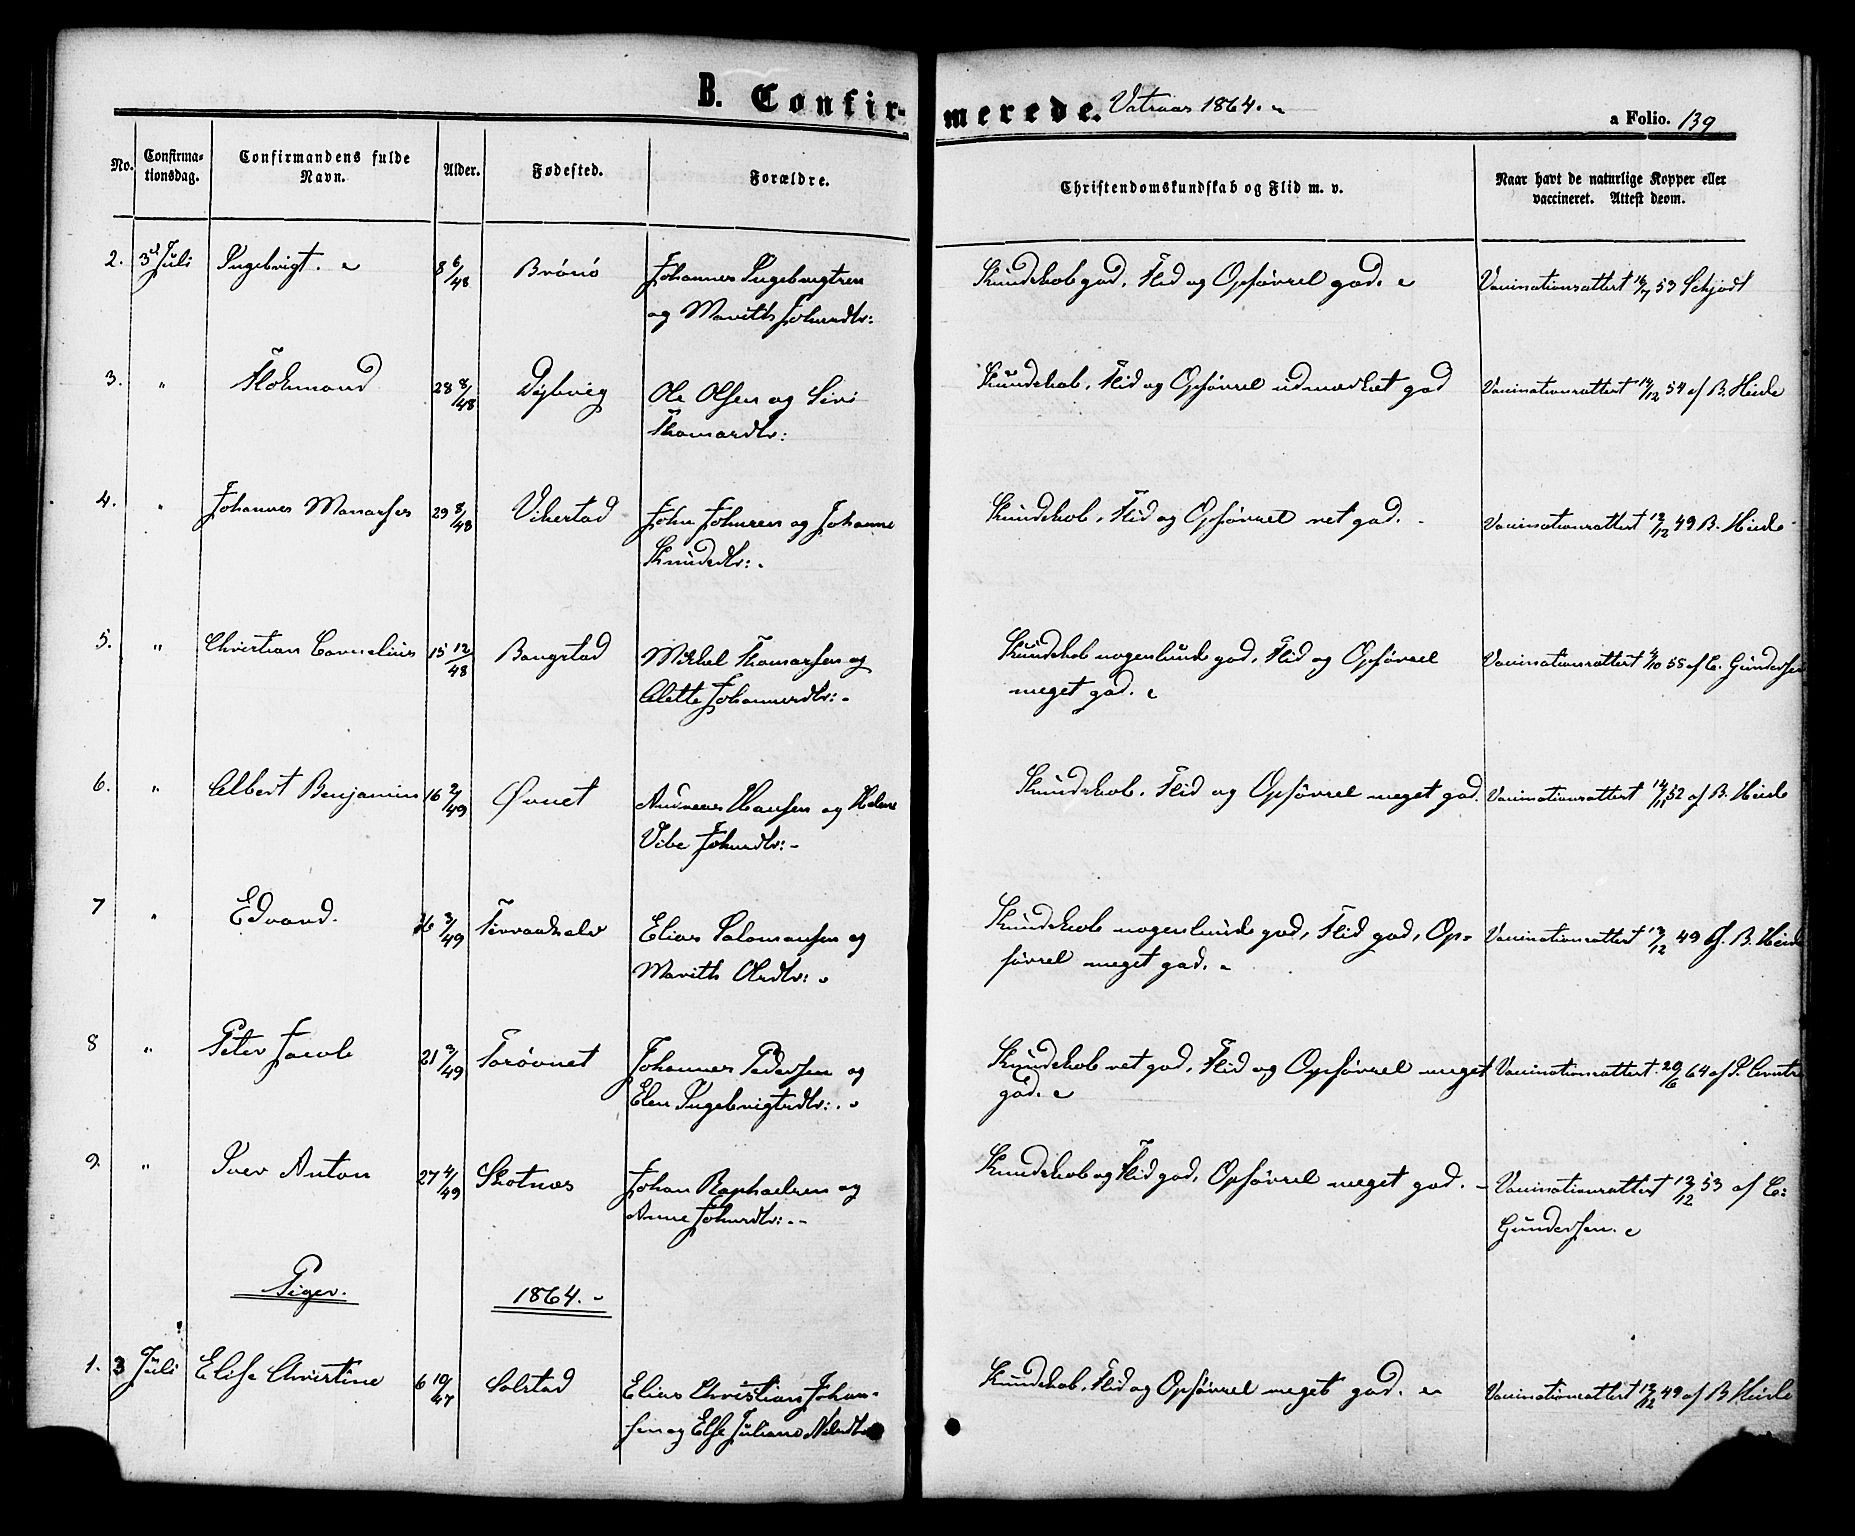 B. Confir-
merede. Vatraas 1864.
a Folio. 139
No. Confirma-tionsdag. Confirmandens fulde Navn. Alder. Fødested. Forældre. Christendomskundskab og Flid m. v. Naar havt de naturlige Kopper eller vaccineret. Attest deom.
2. 3d Juli Ingebrigt. 8 6/48 Brønø Johannes Ingebrigtsen Kundskab god, Flid og Opførsel god. Vaccinationsattest 53 Schjødt
og Marith Johnsdtr:
3. " 28 8/48 Dybvig Ole Olsen og Siri Kundskab, Flid og Opførsel udmærket god Vaccinationsattest 14/12 54 af B. Heide
Thomasdtr:
4. " Johannes Manasses 29 8/48 Vikestad John Johnsen og Johanne Kundskab, Flid og Opførsel ret god. Vaccinationsattest 12/12 49 B. Heide
Knudsdtr:
5. " Christian Cornelius 15 12/48 Bangstad Mikkel Thomassen og Kundskab nogenlunde god, Flid og Opførsel Vaccinationsattest 55 af C. Gundersen
Alette Johannesdtr: meget god.
6. " Albert Benjamin 16 2/49 Øvnet Andreas Hansen og Helene Kundskab, Flid og Opførsel meget god. Vaccinationsattest 14/11 52 af B. Heide
Vibe Johnsdtr:
7 " Edvard. 16 3/49 Terraakelv Elias Salomonsen og Kundskab nogenlunde god, Flid god, Op-Vaccinationsattest 49 af B. Heide
Marith Olsdtr: førsel meget god.
8 " Peter Jacob 21 3/49 Torøvnet Johannes Pedersen og Kundskab ret god, Flid og Opførsel meget Vaccinationsattest 20/6 64 af
Elen Ingebrigtsdtr: god.
9. " Iver Anton 27 4/49 Skotnes Johan Raphaelsen og Kundskab og Flid god, Opførsel meget god. Vaccinationsattest 12/12 53 af C:
Anne Johnsdtr: Gundersen.
Piger. 1864.
1. 3 Juli Elise Christine 6 10/47 Solstad Elias Christian Johan- Kundskab, Flid og Opførsel meget god. Vaccinationsattest 12/12 49 af B Heide
sen og Else Juliane